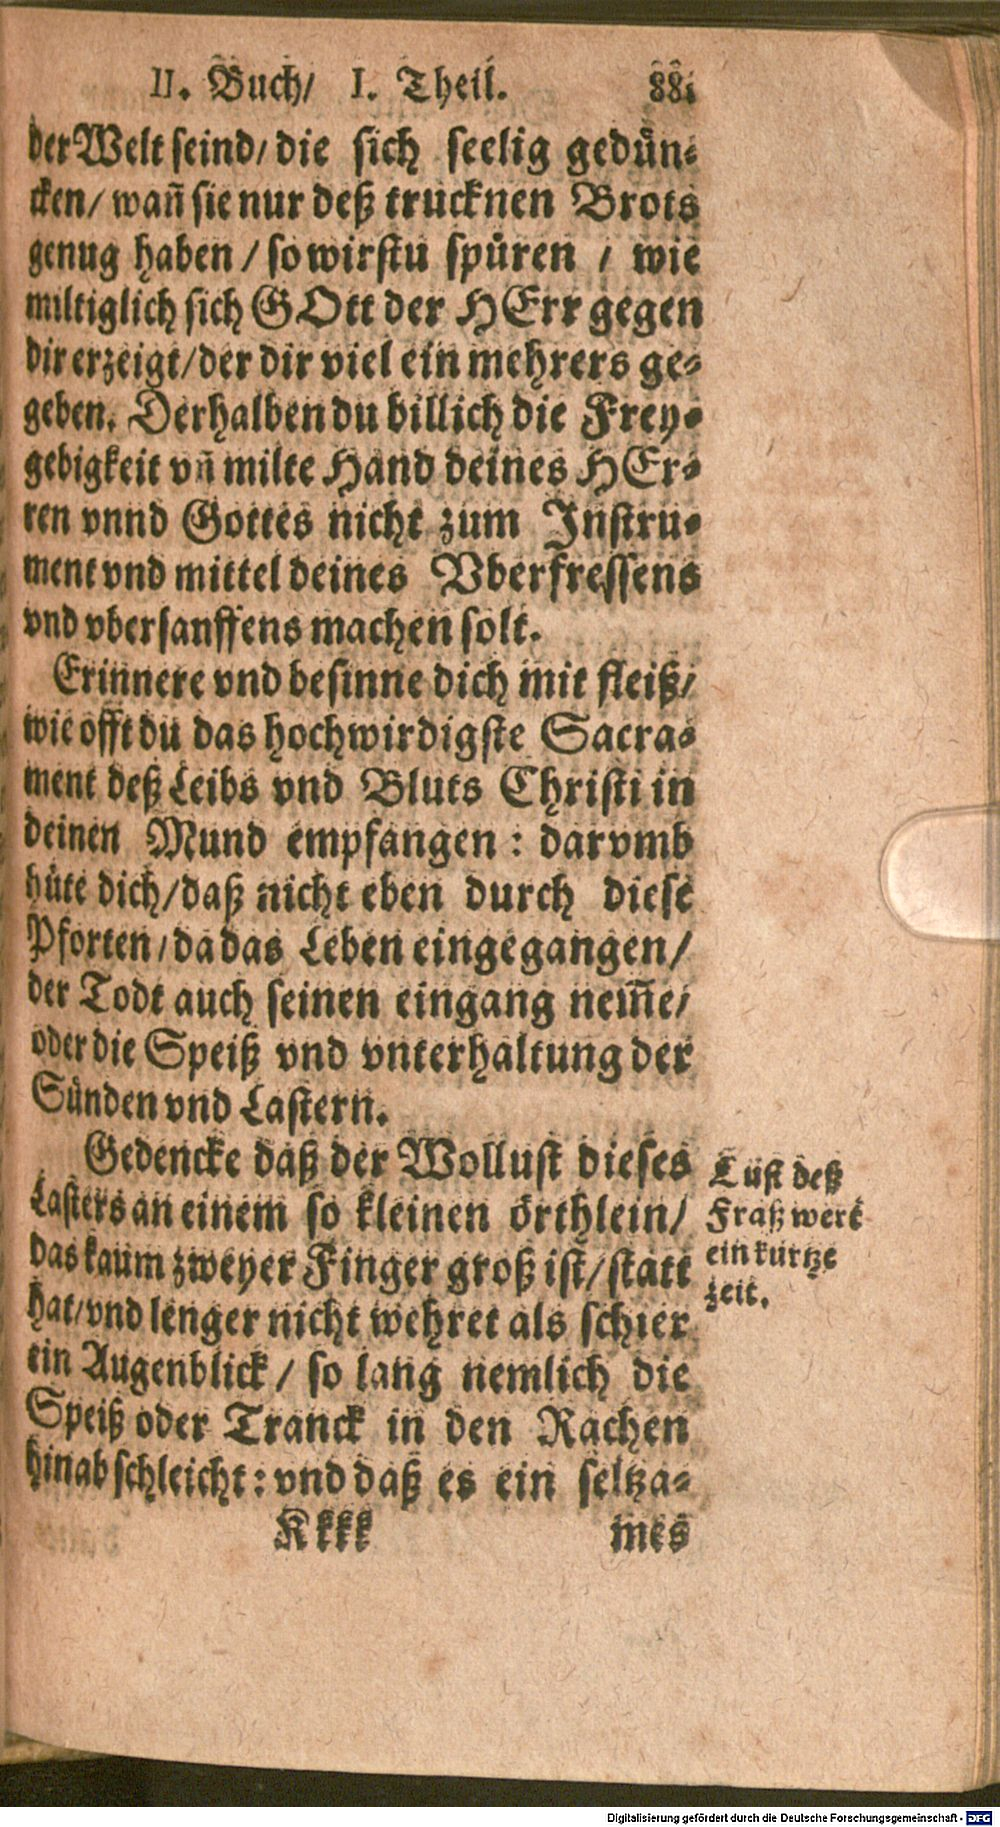 II. Buch/ I. Theil. 881
der Welt seind/ die sich seelig gedün-
cken/ wañ sie nur deß trucknen Brots
genug haben / so wirstu spüren / wie
miltiglich sich GOtt der HErr gegen
dir erzeigt/ der dir viel ein mehrers ge-
geben. Derhalben du billich die Frey-
gebigkeit vñ milte Hand deines HEr-
ren vnnd Gottes nicht zum Instru-
ment vnd mittel deines Vberfressens
vnd vbersauffens machen solt.
Erinnere vnd besinne dich mit fleiß/
wie offt du das hochwirdigste Sacra-
ment deß Leibs vnd Bluts Christi in
deinen Mund empfangen : darvmb
hüte dich/ daß nicht eben durch diese
Pforten/ da das Leben eingegangen/
der Todt auch seinen eingang nem̃e/
oder die Speiß vnd vnterhaltung der
Sünden vnd Lastern.
Gedencke daß der Wollust dieses
Lasters an einem so kleinen örthlein/
das kaum zweyer Finger groß ist/ statt
hat/ vnd lenger nicht wehret als schier
ein Augenblick / so lang nemlich die
Speiß oder Tranck in den Rachen
hinab schleicht: vnd daß es ein seltza-
Kkkk mes
Lust deß
Fraß wert
ein kurtze
zeit.
Digitalisierung gefördert durch die Deutsche Forschungsgemeinschaft - DFG